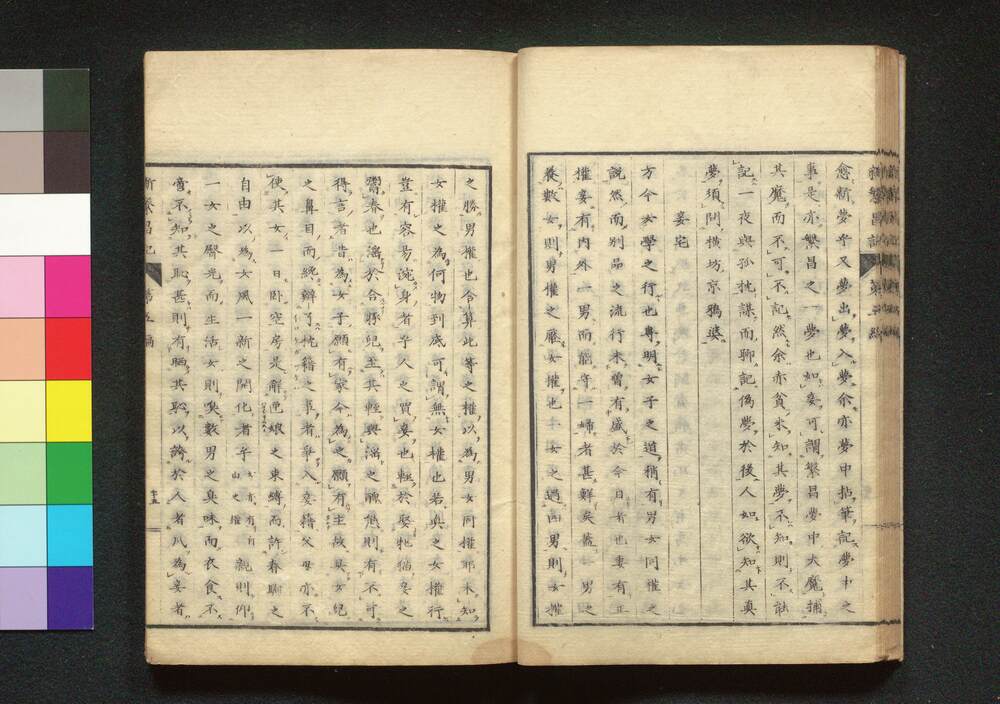 愈新夢乎又夢出夢入夢余亦夢中拈筆記夢中之
事是亦繁昌之一夢也如妾可謂繁昌夢中大魔捕
其魔而不可不記然余赤貧未知其夢不知則不能
記一夜與孫枕謀而聊記偽夢於後人如欲知其真
夢須問橫坊京鴉婆
妾宅
方今女學之行也專明女子之道稍有男女同權之
說然而別品之流行未曾有盛於今日者也妻有正
權妾有內外一男而能守一婦者甚鮮矣蓋一男之
養數女則男權之壓女權也一女之遇四男則女權
之勝男權也合算此等之權以為男女同權耶未知
女權之為何物到底可謂無女權也若真之女權行
豈有容易淹身者乎人之買妾也輕於娶牝猫妾之
鬻春也淫於合將兒至其輕與淫之酷態則有不可
得言者昔為女子願有家今為之願有主故見女兒
之鼻目而纔辨乎枕籍之事者拳入妾籍父母亦不
使其女一日臥空房是解匣娘之束縛而許春聊之
自由以為女風一新之開化者乎女有自由之權親則仰
一女之臀光而生活女則喫數男之真味而衣食不
啻不知其恥甚則有晒其恥以誇於人者凡為妾者
新繁昌記 第五編
十五